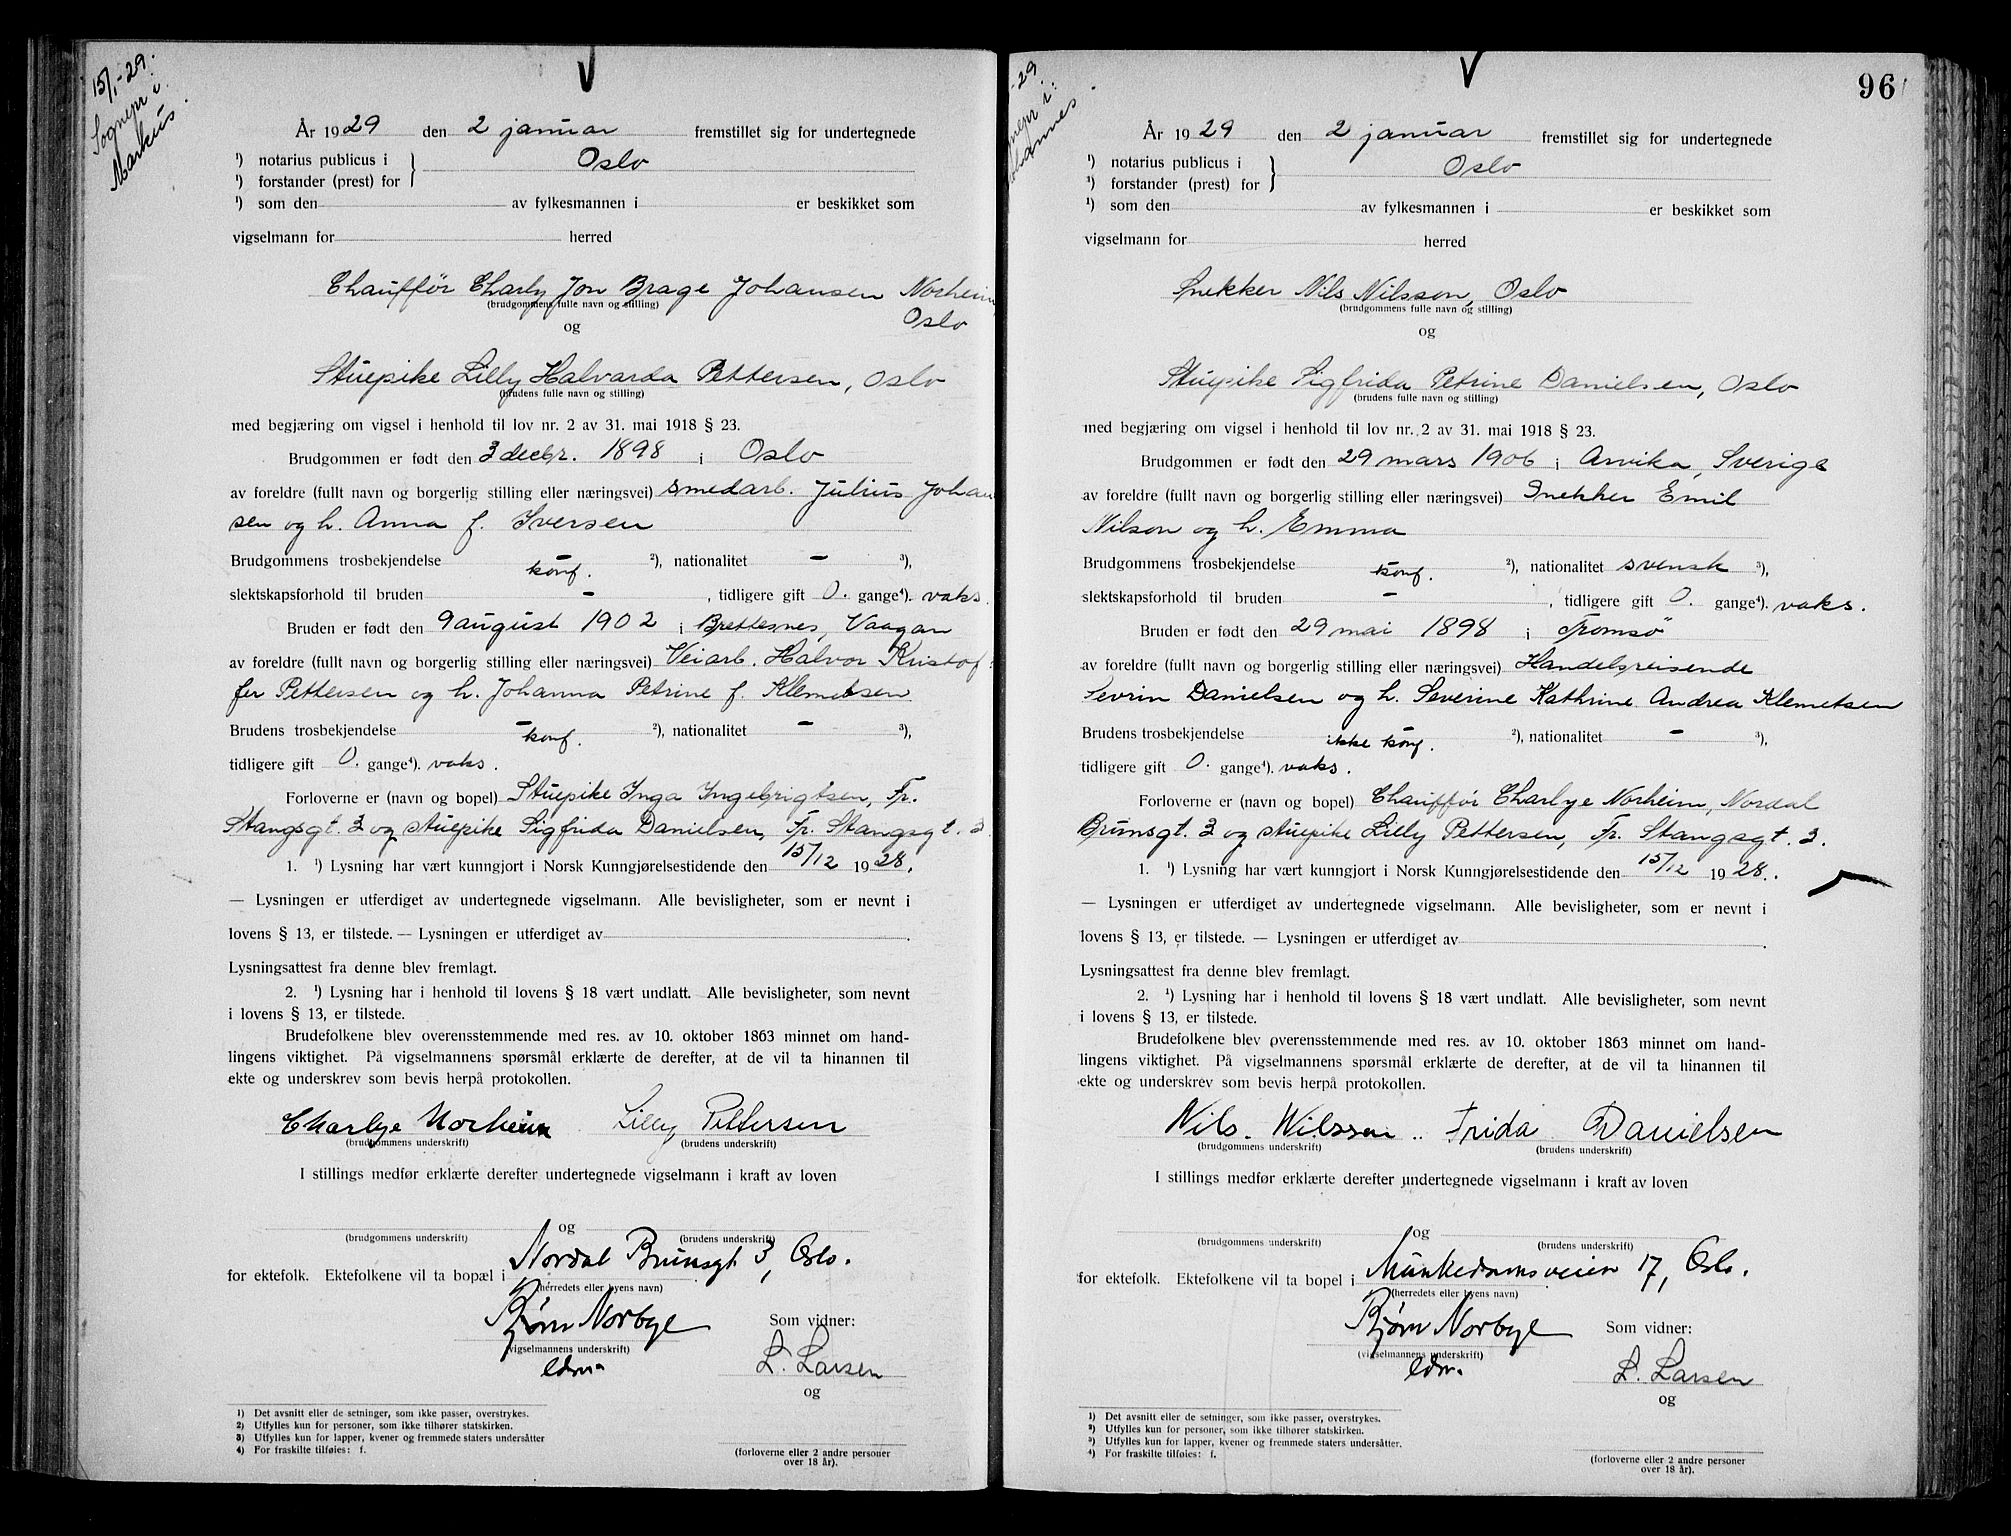 15/1-29.
Sognepr i
Markus.
År 1929 den 2 januar fremstillet sig for undertegnede
¹) notarius publicus i } Oslo
¹) forstander (prest) for
¹) som den av fylkesmannen i er beskikket som
vigselmann for herred
Chauffør Charly Jon Brage Johansen Norheim
(brudgommens fulle navn og stilling)
Oslo
og
Stuepike Lilly Halvarda Pettersen, Oslo
(brudens fulle navn og stilling)
med begjæring om vigsel i henhold til lov nr. 2 av 31. mai 1918 § 23.
Brudgommen er født den 3 decbr. 1898 i Oslo
av foreldre (fullt navn og borgerlig stilling eller næringsvei) smedarb. Julius Johan
sen og h. Anna f. Iversen
Brudgommens trosbekjendelse – ²), nationalitet – ³),
konf.
slektskapsforhold til bruden – , tidligere gift 0. gange⁴). vaks.
Bruden er født den 9 august 1902 i Brettesnes, Vaagan
av foreldre (fullt navn og borgerlig stilling eller næringsvei) Veiarb. Halvor Kristof
fer Pettersen og h. Johanna Petrine f. Klemetsen
Brudens trosbekjendelse – ²), nationalitet – ³),
konf.
tidligere gift 0. gange⁴). vaks.
Forloverne er (navn og bopel) Stuepike Inga Ingebrigtsen, Fr.
Stangsgt. 3 og stuepike Sigfrida Danielsen, Fr. Stangsgt. 3
1. ¹) Lysning har vært kunngjort i Norsk Kunngjørelsestidende den 15/12 1928.
— Lysningen er utferdiget av undertegnede vigselmann. Alle bevisligheter, som er nevnt i
lovens § 13, er tilstede. — Lysningen er utferdiget av .
Lysningsattest fra denne blev fremlagt.
2. ¹) Lysning har i henhold til lovens § 18 vært undlatt. Alle bevisligheter, som nevnt
i lovens § 13, er tilstede.
Brudefolkene blev overensstemmende med res. av 10. oktober 1863 minnet om hand-
lingens viktighet. På vigselmannens spørsmål erklærte de derefter, at de vil ta hinannen til
ekte og underskrev som bevis herpå protokollen.
Charlye Norheim Lilly Pettersen
(brudgommens underskrift) (brudens underskrift)
I stillings medfør erklærte derefter undertegnede vigselmann i kraft av loven
og
(brudgommens underskrift) (brudens underskrift)
for ektefolk. Ektefolkene vil ta bopæl i Nordal Brunsgt 3, Oslo.
(herredets eller byens navn)
Bjørn Norbye Som vidner:
(vigselmannens underskrift)
L. Larsen
og
1) Det avsnitt eller de setninger, som ikke passer, overstrykes.
2) Utfylles kun for personer, som ikke tilhører statskirken.
3) Utfylles kun for lapper, kvener og fremmede staters undersåtter
4) For fraskilte tilføies: f.
(forloverne eller 2 andre personer
over 18 år).
96
-29
År 1929 den 2 januar fremstillet sig for undertegnede
¹) notarius publicus i } Oslo
¹) forstander (prest) for
¹) som den av fylkesmannen i er beskikket som
vigselmann for herred
Snekker Nils Nilsson, Oslo
(brudgommens fulle navn og stilling)
og
Stuepike Sigfrida Petrine Danielsen, Oslo
(brudens fulle navn og stilling)
med begjæring om vigsel i henhold til lov nr. 2 av 31. mai 1918 § 23.
Brudgommen er født den 29 mars 1906 i Arvika, Sverige
av foreldre (fullt navn og borgerlig stilling eller næringsvei) Snekker Emil
Nilson og h. Emma
Brudgommens trosbekjendelse – ²), nationalitet svensk ³),
konf.
slektskapsforhold til bruden – , tidligere gift 0. gange⁴). vaks.
Bruden er født den 29 mai 1898 i Tromsö
av foreldre (fullt navn og borgerlig stilling eller næringsvei) Handelsreisende
Sevrin Danielsen og h. Severine Kathrine Andrea Klemetsen
Brudens trosbekjendelse ²), nationalitet – ³),
ikke konf.
tidligere gift 0. gange⁴). vaks.
Forloverne er (navn og bopel) Chauffør Charlye Norheim, Nordal
Brunsgt. 3 og stuepike Lilly Pettersen, Fr. Stangsgt. 3.
1. ¹) Lysning har vært kunngjort i Norsk Kunngjørelsestidende den 15/12 1928.
— Lysningen er utferdiget av undertegnede vigselmann. Alle bevisligheter, som er nevnt i
lovens § 13, er tilstede. — Lysningen er utferdiget av .
Lysningsattest fra denne blev fremlagt.
2. ¹) Lysning har i henhold til lovens § 18 vært undlatt. Alle bevisligheter, som nevnt
i lovens § 13, er tilstede.
Brudefolkene blev overensstemmende med res. av 10. oktober 1863 minnet om hand-
lingens viktighet. På vigselmannens spørsmål erklærte de derefter, at de vil ta hinannen til
ekte og underskrev som bevis herpå protokollen.
Nils. Nilssen .. Frida Danielsen
(brudgommens underskrift) (brudens underskrift)
I stillings medfør erklærte derefter undertegnede vigselmann i kraft av loven
og
(brudgommens underskrift) (brudens underskrift)
for ektefolk. Ektefolkene vil ta bopel i Munkedamsveien 17, Oslo.
(herredets eller byens navn)
Bjørn Norbye Som vidner:
(vigselmannens underskrift)
L. Larsen
og
1) Det avsnitt eller de setninger, som ikke passer, overstrykes.
2) Utfylles kun for personer, som ikke tilhører statskirken.
3) Utfylles kun for lapper, kvener og fremmede staters undersåtter.
4) For fraskilte tilføies: f.
(forloverne eller 2 andre personer
over 18 år).